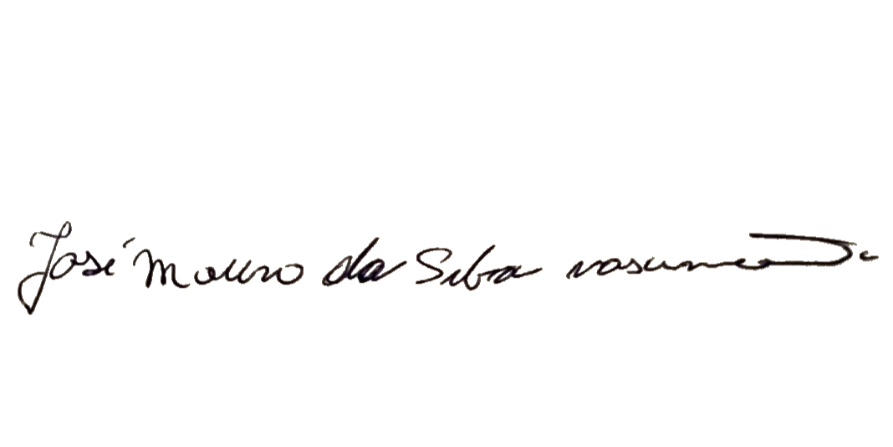 José Mauro da Silva Nascimento